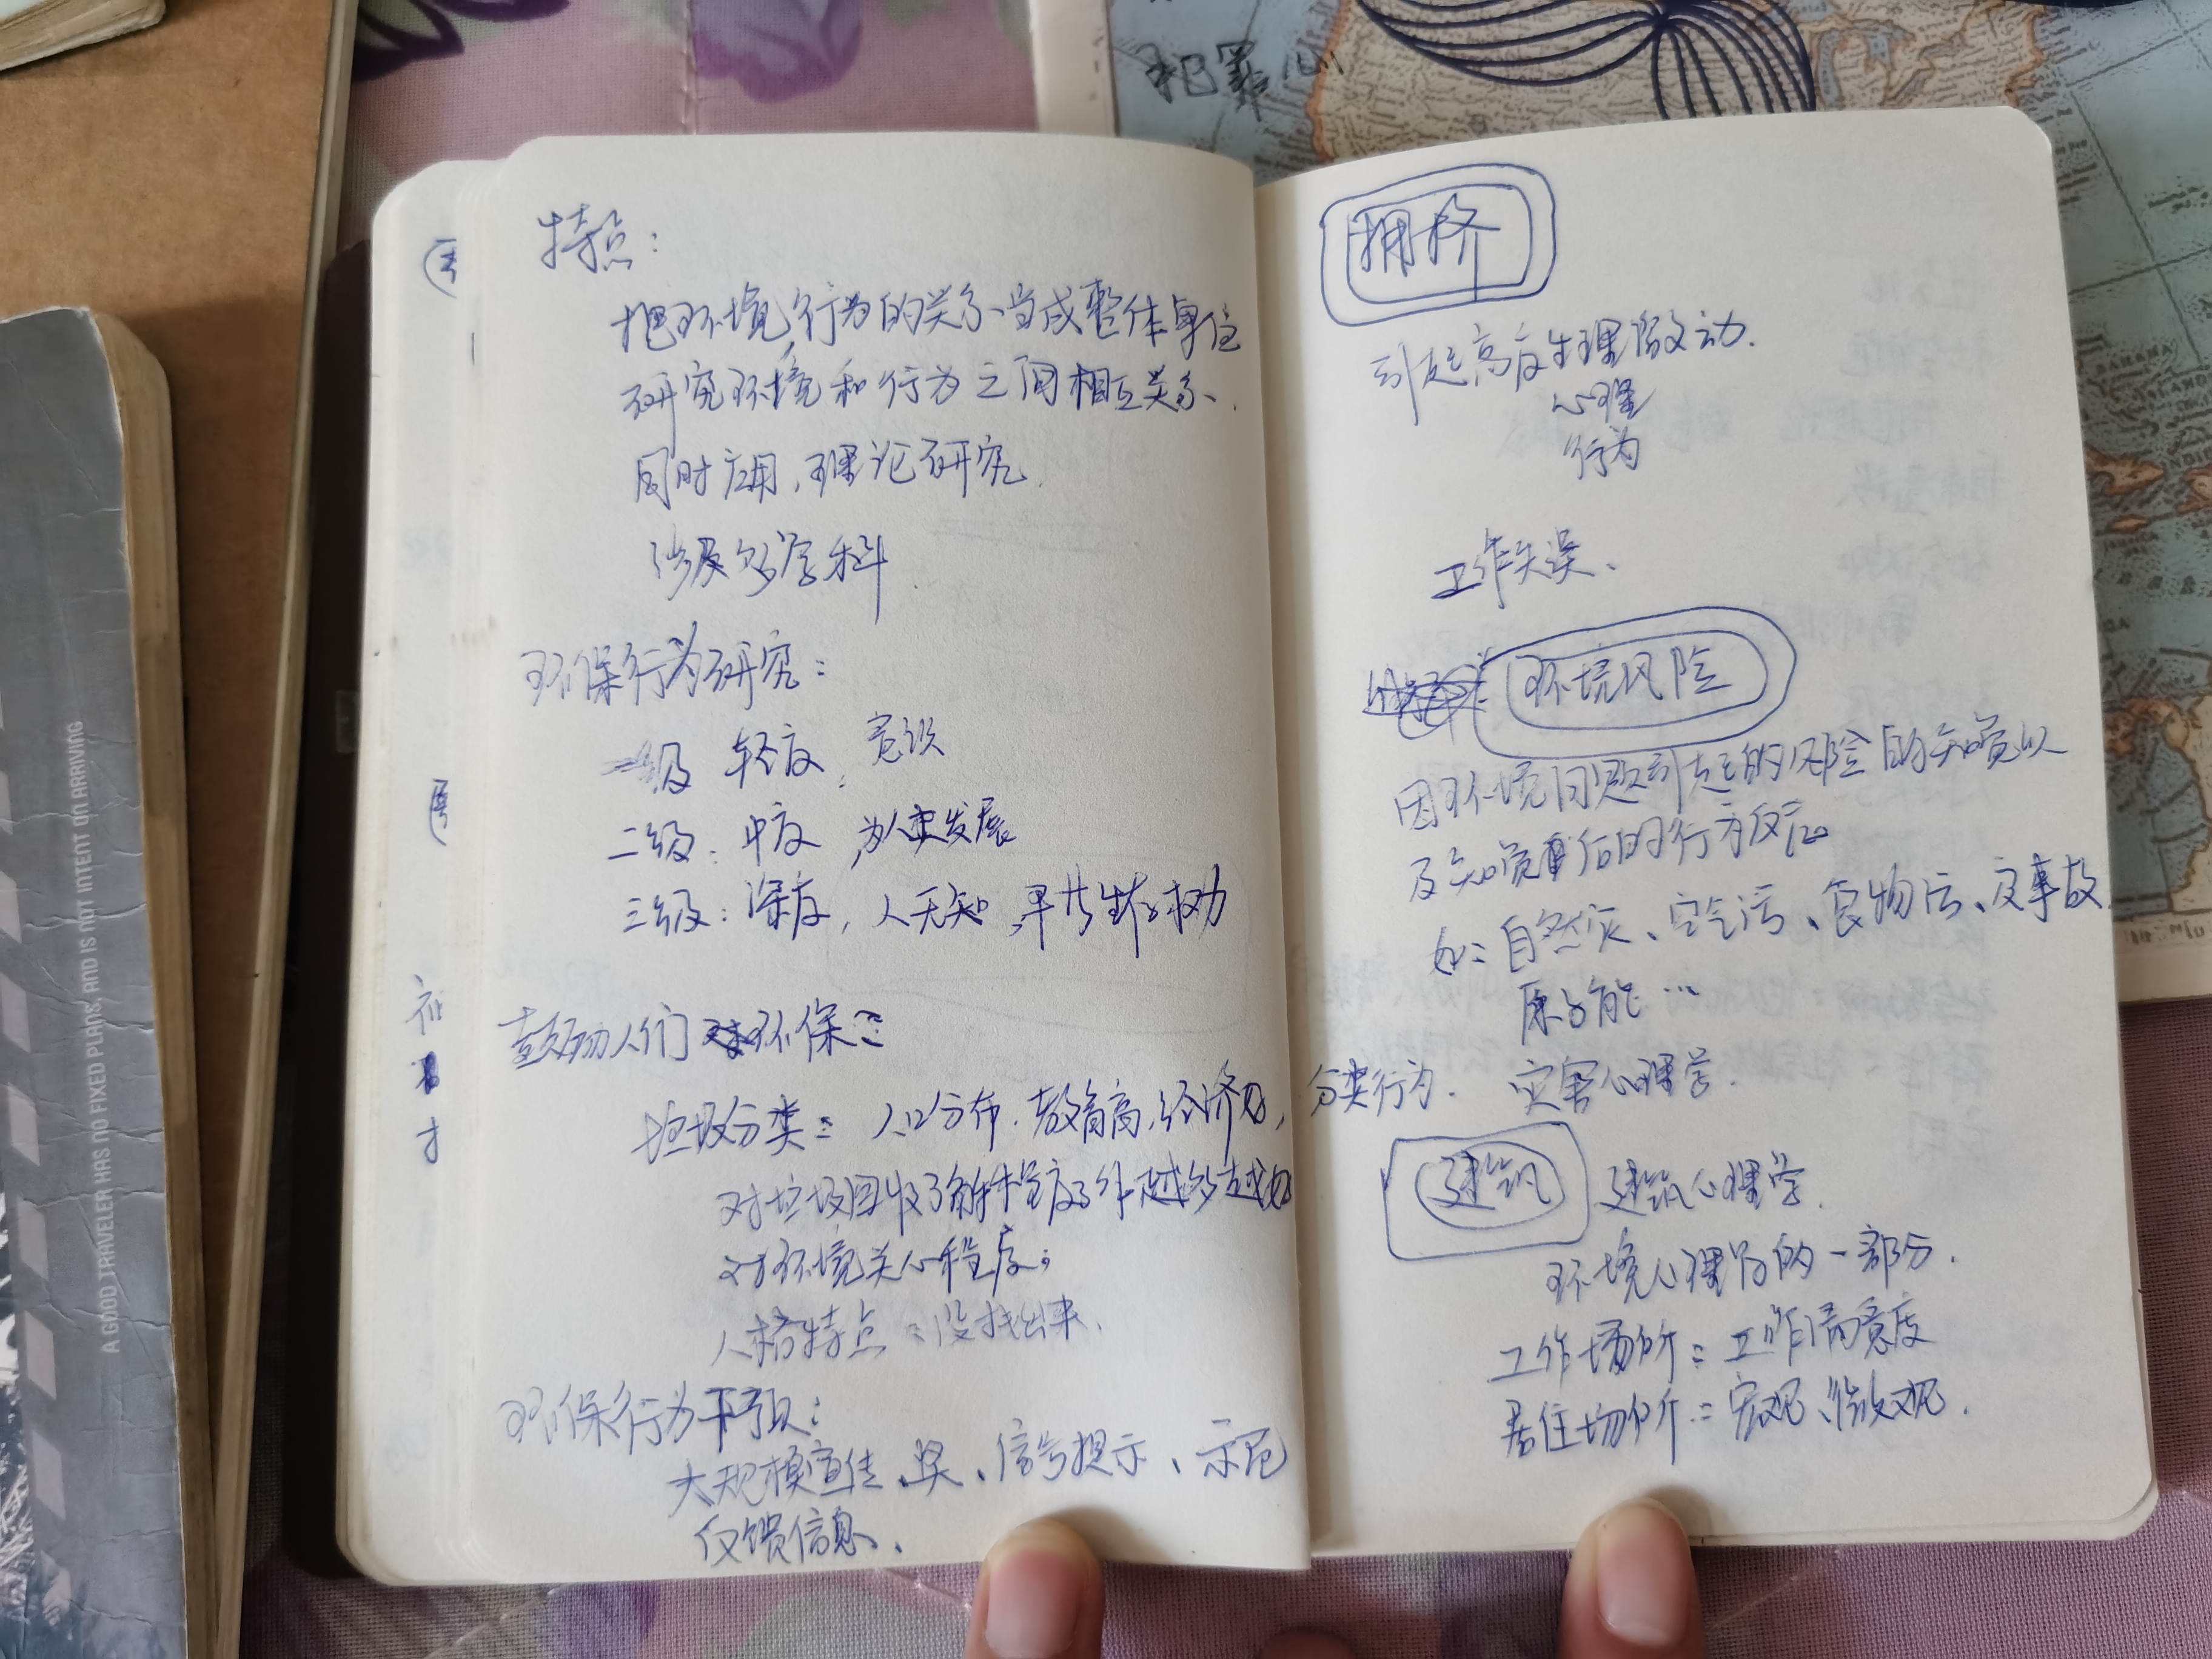 特点：
把环境,行为的关系当成整体单位
研究环境和行为之间相互关系.
同时应用、理论研究.
涉及多学科.
环保行为研究：
一级 轻度，
二级：中度，为人类发展
三级：深度，人无知，
鼓励人们 环保：
垃圾分类：人口分布.教育高,经济好,
对垃圾回收了解程度
对环境关心程度；
人格特点：没找出来.
环保行为干预：
大规模宣传、奖、信号提示、示范
反馈信息、
拥挤
引起高度生理激动.
心理
行为
工作失误、
环境风险
因环境问题引起的风险的知觉以
及知觉后的行为反应
如：自然灾、空气污、食物污、及事故
原子能…
分类行为. 灾害心理学.
建筑 建筑心理学.
环境心理学的一部分.
工作场所：工作满意度
居住场所：宏观、微观.
犯罪心
A GOOD TRAVELER HAS NO FIXED PLANS, AND IS NOT INTENT ON ARRIVING